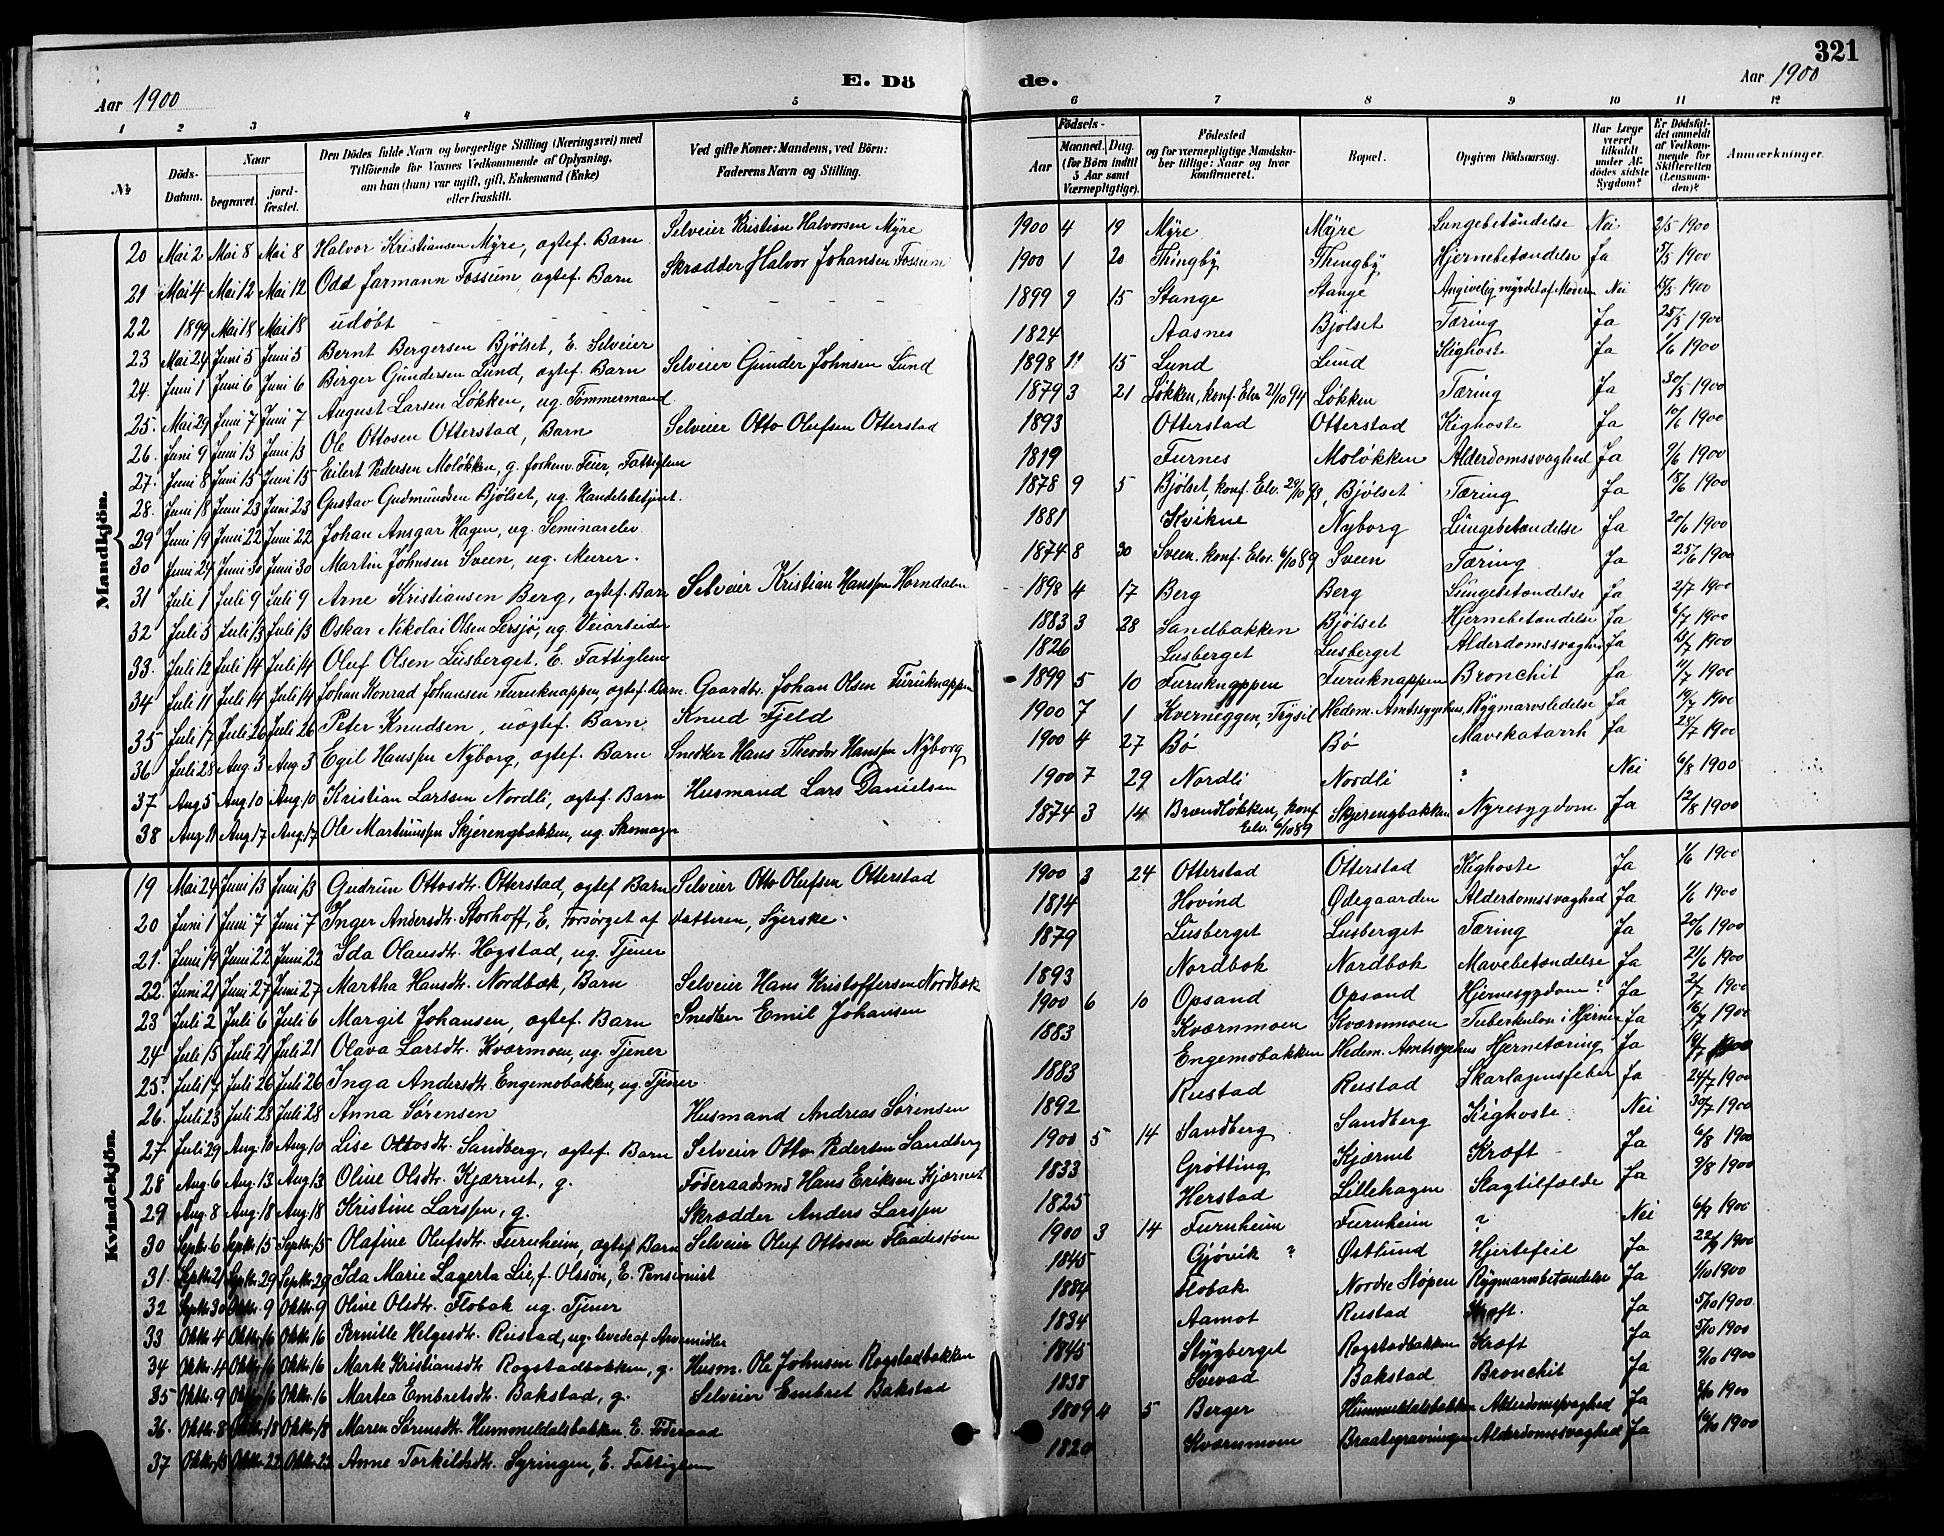 321
E. Dö de.
Aar 1900
Aar 1900
1 2 3 4 5 6 7 8 9 10 11 12
№
Döds-Datum.
Naar begravet. jordfæstet.
Den Dödes fulde Navn og borgerlige Stilling (Næringsvei) med Tilföiende for Voxnes Vedkommende af Oplysning, om han (hun) var ugift, gift, Enkemand (Enke) eller fraskilt.
Ved gifte Koner: Mandens, ved Börn: Faderens Navn og Stilling.
Födsels-
Aar Maaned. Dag. (for Börn indtil 5 Aar samt Værnepligtige).
Födested og for værnepligtige Mandskaber tillige: Naar og hvor konfirmeret.
Bopæl.
Opgiven Dödsaarsag.
Har Læge været tilkaldt under Afdödes sidste Sygdom?
Er Dödsfaldet anmeldt af Vedkommende for Skifteretten (Lensmanden)?
Anmærkninger.
Mandkjön.
20 Mai 2 Mai 8 Mai 8 Halvor Kristiansen Myre, ægtef. Barn Selveier Kristian Halvorsen Myre 1900 4 19 Myre Myre Lungebetændelse Nei 2/5 1900
21 Mai 4 Mai 12 Mai 12 Odd Jarmann Fossum, ægtef. Barn Skrædder Halvor Johansen Fossum 1900 1 20 Thingby Thingby Hjernebetændelse Ja 5/5 1900
22 1899 Mai 18 Mai 18 udøbt - - - - 1899 9 15 Stange Stange Angivelig myrdet af Moderen Nei 15/5 1900
23 Mai 24 Juni 5 Juni 5 Bernt Bergersen Bjølset, E. Selveier 1824 Aasnes Bjölset Tæring Ja 25/5 1900
24. Juni 1 Juni 6 Juni 6 Birger Gundersen Lund, ægtef. Barn Selveier Gunder Johnsen Lund 1898 11 15 Lund Lund Kighoste Ja 1/6 1900
25. Mai 29 Juni 7 Juni 7 August Larsen Løkken, ug. Tømmermand 1879 3 21 Løkken, konf. Elv. 21/10 94 Løkken Tæring Ja 30/5 1900
26. Juni 9 Juni 13 Juni 13 Ole Ottosen Otterstad, Barn Selveier Otto Olufsen Otterstad 1893 Otterstad Otterstad Kighoste Ja 10/6 1900
27. Juni 8 Juni 15 Juni 15 Eilert Pedersen Moløkken, g. forhenv. Feier, Fattiglem 1819 Furnes Moløkken Alderdomssvaghed Ja 9/6 1900
28. Juni 18 Juni 23 Juni 23 Gustav Gudmundsen Bjølset, ug. Handelsbetjent 1878 9 5 Bjølset, konf. Elv. 29/10 93, Bjølset Tæring Ja 18/6 1900
29 Juni 19 Juni 22 Juni 22 Johan Ansgar Hagen, ug. Seminarelev 1881 Kvikne Nyborg Lungebetændelse Ja 20/6 1900
30 Juni 24 Juni 30 Juni 30 Martin Johnsen Sveen, ug. Murer. 1874 8 30 Sveen, konf. Elv. 6/10 89 Sveen Tæring Ja 25/6 1900
31 Juli 1 Juli 9 Juli 9 Arne Kristiansen Berg, ægtef. Barn Selveier Kristian Hanssen Horndalen 1898 4 17 Berg Berg Lungebetændelse Ja 2/7 1900
32 Juli 3 Juli 13 Juli 13 Oskar Nikolai Olsen Lersjø, ug. Veiarbeider 1883 3 28 Sandbakken Bjølset Hjernebetændelse Ja 6/7 1900
33. Juli 12 Juli 14 Juli 14 Oluf Olsen Lusberget. E. Fattiglem 1826 Lusberget Lusberget Alderdomssvaghed Ja 13/7 1900
34 Juli 11 Juli 14 Juli 14 Johan Konrad Johansen Furuknappen, ægtef. Barn. Gaardbr. Johan Olsen Furuknappen 1899 5 10 Furuknappen Furuknappen Bronchit Ja 11/7 1900
35 Juli 17 Juli 26 Juli 26 Peter Knudsen, uægtef. Barn Knud Fjeld 1900 7 1 Kverneggen, Trysil Hedem. Amtssygehus, Rygmarvslidelse Ja 19/7 1900
36 Juli 28 Aug. 3 Aug 3 Egil Hanssen Nyborg, ægtef. Barn Snedker Hans Theodor Hanssen Nyborg 1900 4 27 Bø Bø Mavekatarrh Ja 28/7 1900
37 Aug 5 Aug 10 Aug 10 Kristian Larssen Nordli, ægtef. Barn Husmand Lars Danielsen 1900 7 29 Nordli Nordli ? Nei 6/8 1900
38 Aug 11 Aug 17 Aug. 17 Ole Martinussen Skjærengbakken, ug. Skomager 1874 3 14 Brændløkken, konf Elv. 6/10 89 Skjerengbakken Nyresygdom Ja 12/8 1900
Kvindekjön.
19 Mai 24 Juni 13 Juni 13 Gudrun Ottosdtr. Otterstad, ægtef Barn Selveier Otto Olufsen Otterstad 1900 3 24 Otterstad Otterstad Kighoste Ja 1/6 1900
20 Juni 1 Juni 7 Juni 7 Inger Andersdtr. Storhoff, E. Forsørget af datteren, Syerske. 1814 Hovind Ødegaarden Alderdomssvaghed Ja 1/6 1900
21. Juni 19 Juni 22 Juni 22 Ida Olausdtr. Hogstad, ug. Tjener 1879 Lusberget Lusberget Tæring Ja 20/6 1900
22. Juni 21 Juni 27 Juni 27 Martha Hansdtr. Nordbæk, Barn Selveier Hans Kristoffersen Nordbæk 1893 Nordbæk Nordbæk Mavebetændelse Ja 21/6 1900
23 Juli 2 Juli 6 Juli 6 Margit Johansen, ægtef. Barn Snedker Emil Johansen 1900 6 10 Opsand Opsand Hjernesygdom? Ja 2/7 1900
24 Juli 15 Juli 21 Juli 21 Olava Larsdtr. Kværmoen, ug. Tjener 1883 Kværnmoen Kværnmoen Tuberkulos i Hjernen Ja 16/7 1900
25. Juli 17 Juli 26 Juli 26 Inga Andersdtr. Engemobakken, ug. Tjener 1883 Engemobakken Hedem. Amtssygehus Hjernetæring Ja 18/7 1900
26. Juli 23 Juli 28 Juli 28 Anna Sørensen Husmand Andreas Sørensen 1892 Rustad Rustad Skarlagensfeber Ja 24/7 1900
27 Juli 29 Aug. 10 Aug 10 Lise Ottosdtr. Sandberg, ægtef. Barn Selveier Otto Pedersen Sandberg 1900 5 14 Sandberg Sandberg Kighoste Nei 30/7 1900
28 Aug. 6 Aug. 13 Aug 13 Oline Olsdtr. Kjærnet, g. Føderaadsmd Hans Eriksen Kjærnet 1833 Grøtting Kjærnet Kræft Ja 6/8 1900
29 Aug. 8 Aug. 18 Aug 18 Kristine Larssen, g. Skrædder Anders Larssen 1825 Herstad Lillehagen Slagtilfælde Ja 9/8 1900
30 Septr. 6 Septr. 15 Septr. 15 Olafine Olufsdtr. Furnheim, ægtef. Barn Selveier Oluf Ottosen Flaadestøen 1900 3 14 Furnheim Furnheim ? Nei 6/9 1900
31. Septr. 21 Septr. 29 Septr. 29 Ida Marie Lagerta Lie, f. Olsson, E. Pensionist 1845 Gjøvik ? Østlund Hjertefeil Ja 22/9 1900
32 Septr. 30 Oktr. 9 Oktr. 9 Oline Olsdtr. Flobak ug. Tjener 1884 Flobak Nordre Støpen Rygmarvsbetændelse Ja 1/10 1900
33 Oktr. 4 Oktr. 16 Oktr. 16 Pernille Helgesdtr. Rustad, ug. levede af Arvemidler 1834 Aamot Rustad Kræft. Ja 5/10 1900
34 Oktr. 4 Oktr. 16 Oktr. 16 Marte Kristiansdtr. Rogstadbakken, g. Husm. Ole Johnsen Rogstadbakken 1845 Stygberget Rogstadbakken Kræft Ja 5/10 1900
35 Oktr. 9 Oktr. 16 Oktr. 16 Martea Embretsdtr. Bakstad, g. Selveier Embret Bakstad 1838 Svevad Bakstad Bronchit Ja 9/10 1900
36. Oktr. 8 Oktr. 18 Oktr. 18 Maren Sørensdtr. Hummeldalsbakken. E. Föderaad 1809 4 5 Berger Hummeldalsbakken Alderdomssvaghed Ja 9/10 1900
37 Oktr. 13 Oktr. 22 Oktr. 22 Anne Torkildsdtr. Syringen, E. Fattiglem 1820 Kværnmoen Braategravningen Alderdomssvaghed Ja 14/10 1900